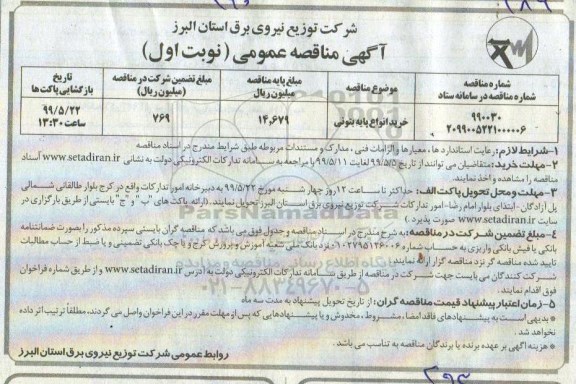 شرکت توزیع نیروی برق استان البرز
آگهی مناقصه عمومی (نوبت اول)
شماره مناقصه
شماره مناقصه در سامانه ستاد
موضوع مناقصه
مبلغ پایه مناقصه
میلیون ریال
مبلغ تضمین شرکت در مناقصه
(میلیون ریال)
تاریخ
بازگشایی پاکت ها
۹۹۰۰۳۰
۲۰۹۹۰۰۵۲۲۱۰۰۰۰۰۶
خرید انواع پایه بتونی
۱۴,۶۷۹
۷۶۹
۹۹/۵/۲۲
ساعت ۱۳:۳۰
۱-شرایط لازم: رعایت استانداردها، معیارها و الزامات فنی، مدارک و مستندات مربوطه طبق شرایط مندرج در اسناد مناقصه
۲- مهلت خرید: متقاضیان می توانند از تاریخ ۹۹/۵/۵ لغایت ۹۹/۵/۱۱ با مراجعه به سامانه تدارکات الکترونیکی دولت به نشانی www.setadiran.ir اسناد
مناقصه را مشاهده و اخذ نمایند.
۳-مهلت و محل تحویل پاکت الف: حداکثر تا ساعت ۱۲ روز چهارشنبه مورخ ۹۹/۵/۲۲ به دبیرخانه امور تدارکات واقع در کرج بلوار طالقانی شمالی
پل آزادگان - ابتدای بلوار امام رضا- امور تدارکات شرکت توزیع نیروی برق استان البرز تحویل نمایند. (ارائه پاکت های "ب" و "ج" بایستی از طریق بارگزاری در
سایت www.setadiran.ir صورت پذیرد.)
۴- مبلغ تضمین شرکت در مناقصه: به شرح مندرج در اسناد مناقصه و جدول فوق می باشد که مناقصه گران بایستی سپرده مذکور را بصورت ضمانتنامه
بانکی یا فیش بانکی واریزی به حساب شماره نزد بانک ملی شعبه آموزش و پرورش کرج و یا چک بانکی تضمینی و یا ضبط از حساب مطالبات
تایید شده مناقصه گر نزد مناقصه گزار ارائه نمایند.
شرکت کنندگان می بایست جهت شرکت در مناقصه از طریق سامانه تدارکات الکترونیکی دولت به آدرس www.setadiran.ir و از طریق شماره فراخوان
فوق اقدام نمایند.
۵-زمان اعتبار پیشنهاد قیمت مناقصه گران: از تاریخ تحویل پیشنهاد به مدت سه ماه
* بدیهی است به پیشنهادهای فاقد امضا، مشروط، مخدوش و یا پیشنهادهایی که پس از مهلت مقرر در این فراخوان واصل می گردند، مطلقاً ترتیب اثر داده
نخواهد شد.
* هزینه آگهی بر عهده برنده یا برندگان مناقصه به تناسب می باشد.
روابط عمومی شرکت توزیع نیروی برق استان البرز
ParsNamadData
۰۲۱-۸۸۳۴۹۶۷۰-۵